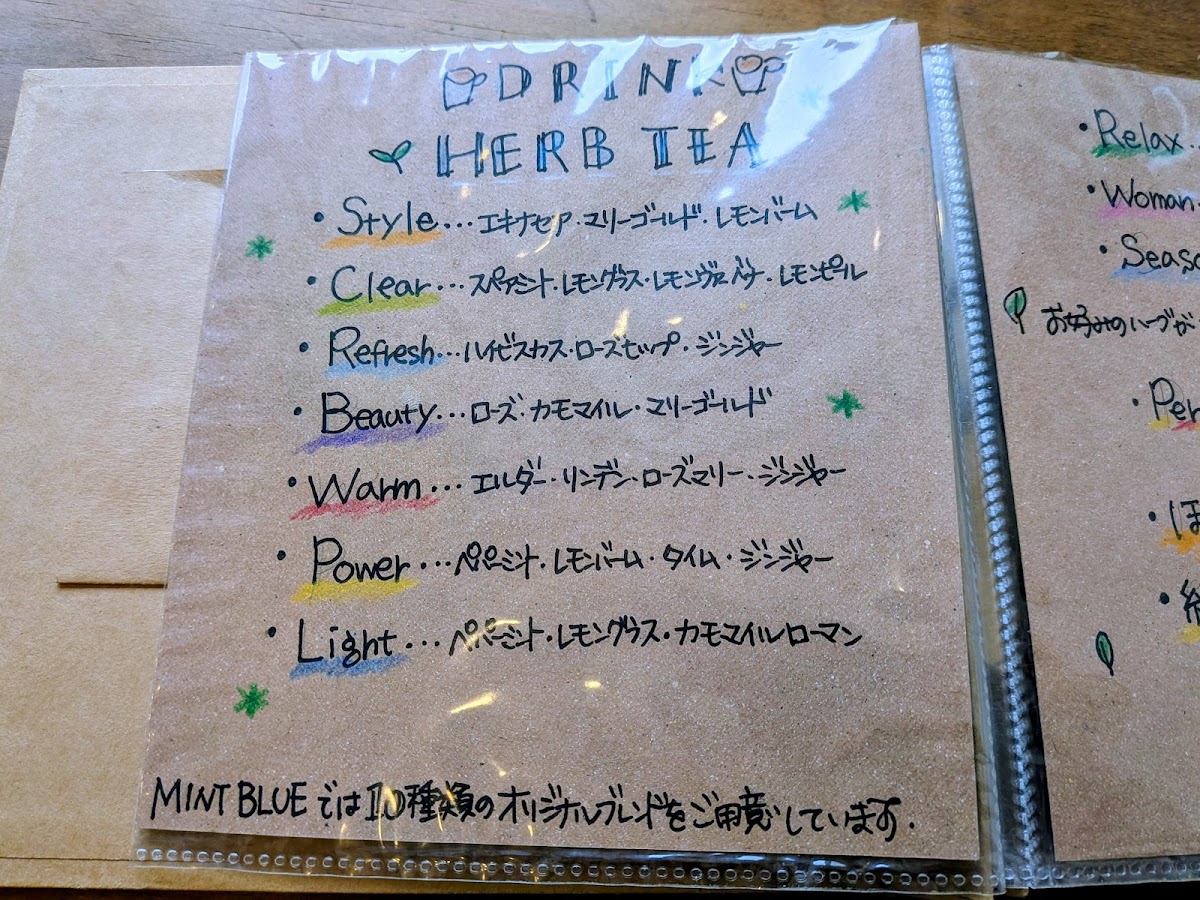 DRINK
HERB TEA
・Style…エキナセア・マリーゴールド・レモンバーム
・Clear…スペアミント・レモングラス・レモンヴァーベナ・レモンピール
・Refresh…ハイビスカス・ローズヒップ・ジンジャー
・Beauty…ローズ・カモマイル・マリーゴールド
・Warm…エルダー・リンデン・ローズマリー・ジンジャー
・Power…ペパーミント・レモンバーム・タイム・ジンジャー
・Light…ペパーミント・レモングラス・カモマイルローマン
MINT BLUEでは10種類のオリジナルブレンドをご用意しています.
・Relax..
・Woman
・Seaso
お好みのハーブが
・Per
・ほ